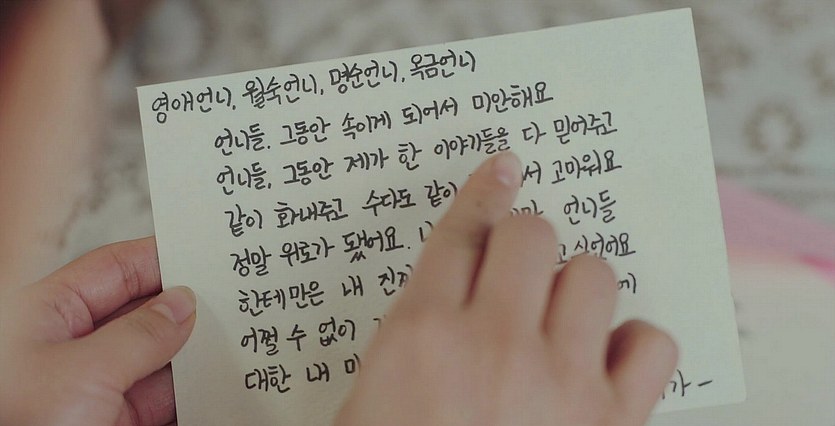 영애언니, 월숙언니, 명순언니, 옥금언니
언니들. 그동안 속이게 되어서 미안해요
언니들, 그동안 제가 한 이야기들을 다 믿어주고
같이 화내주고 수다도 같이 서 고마워요
정말 위로가 됐어요. 언니들
한테만은 내 싶었어요
어쩔 수 없이 에
대한 내 가 -